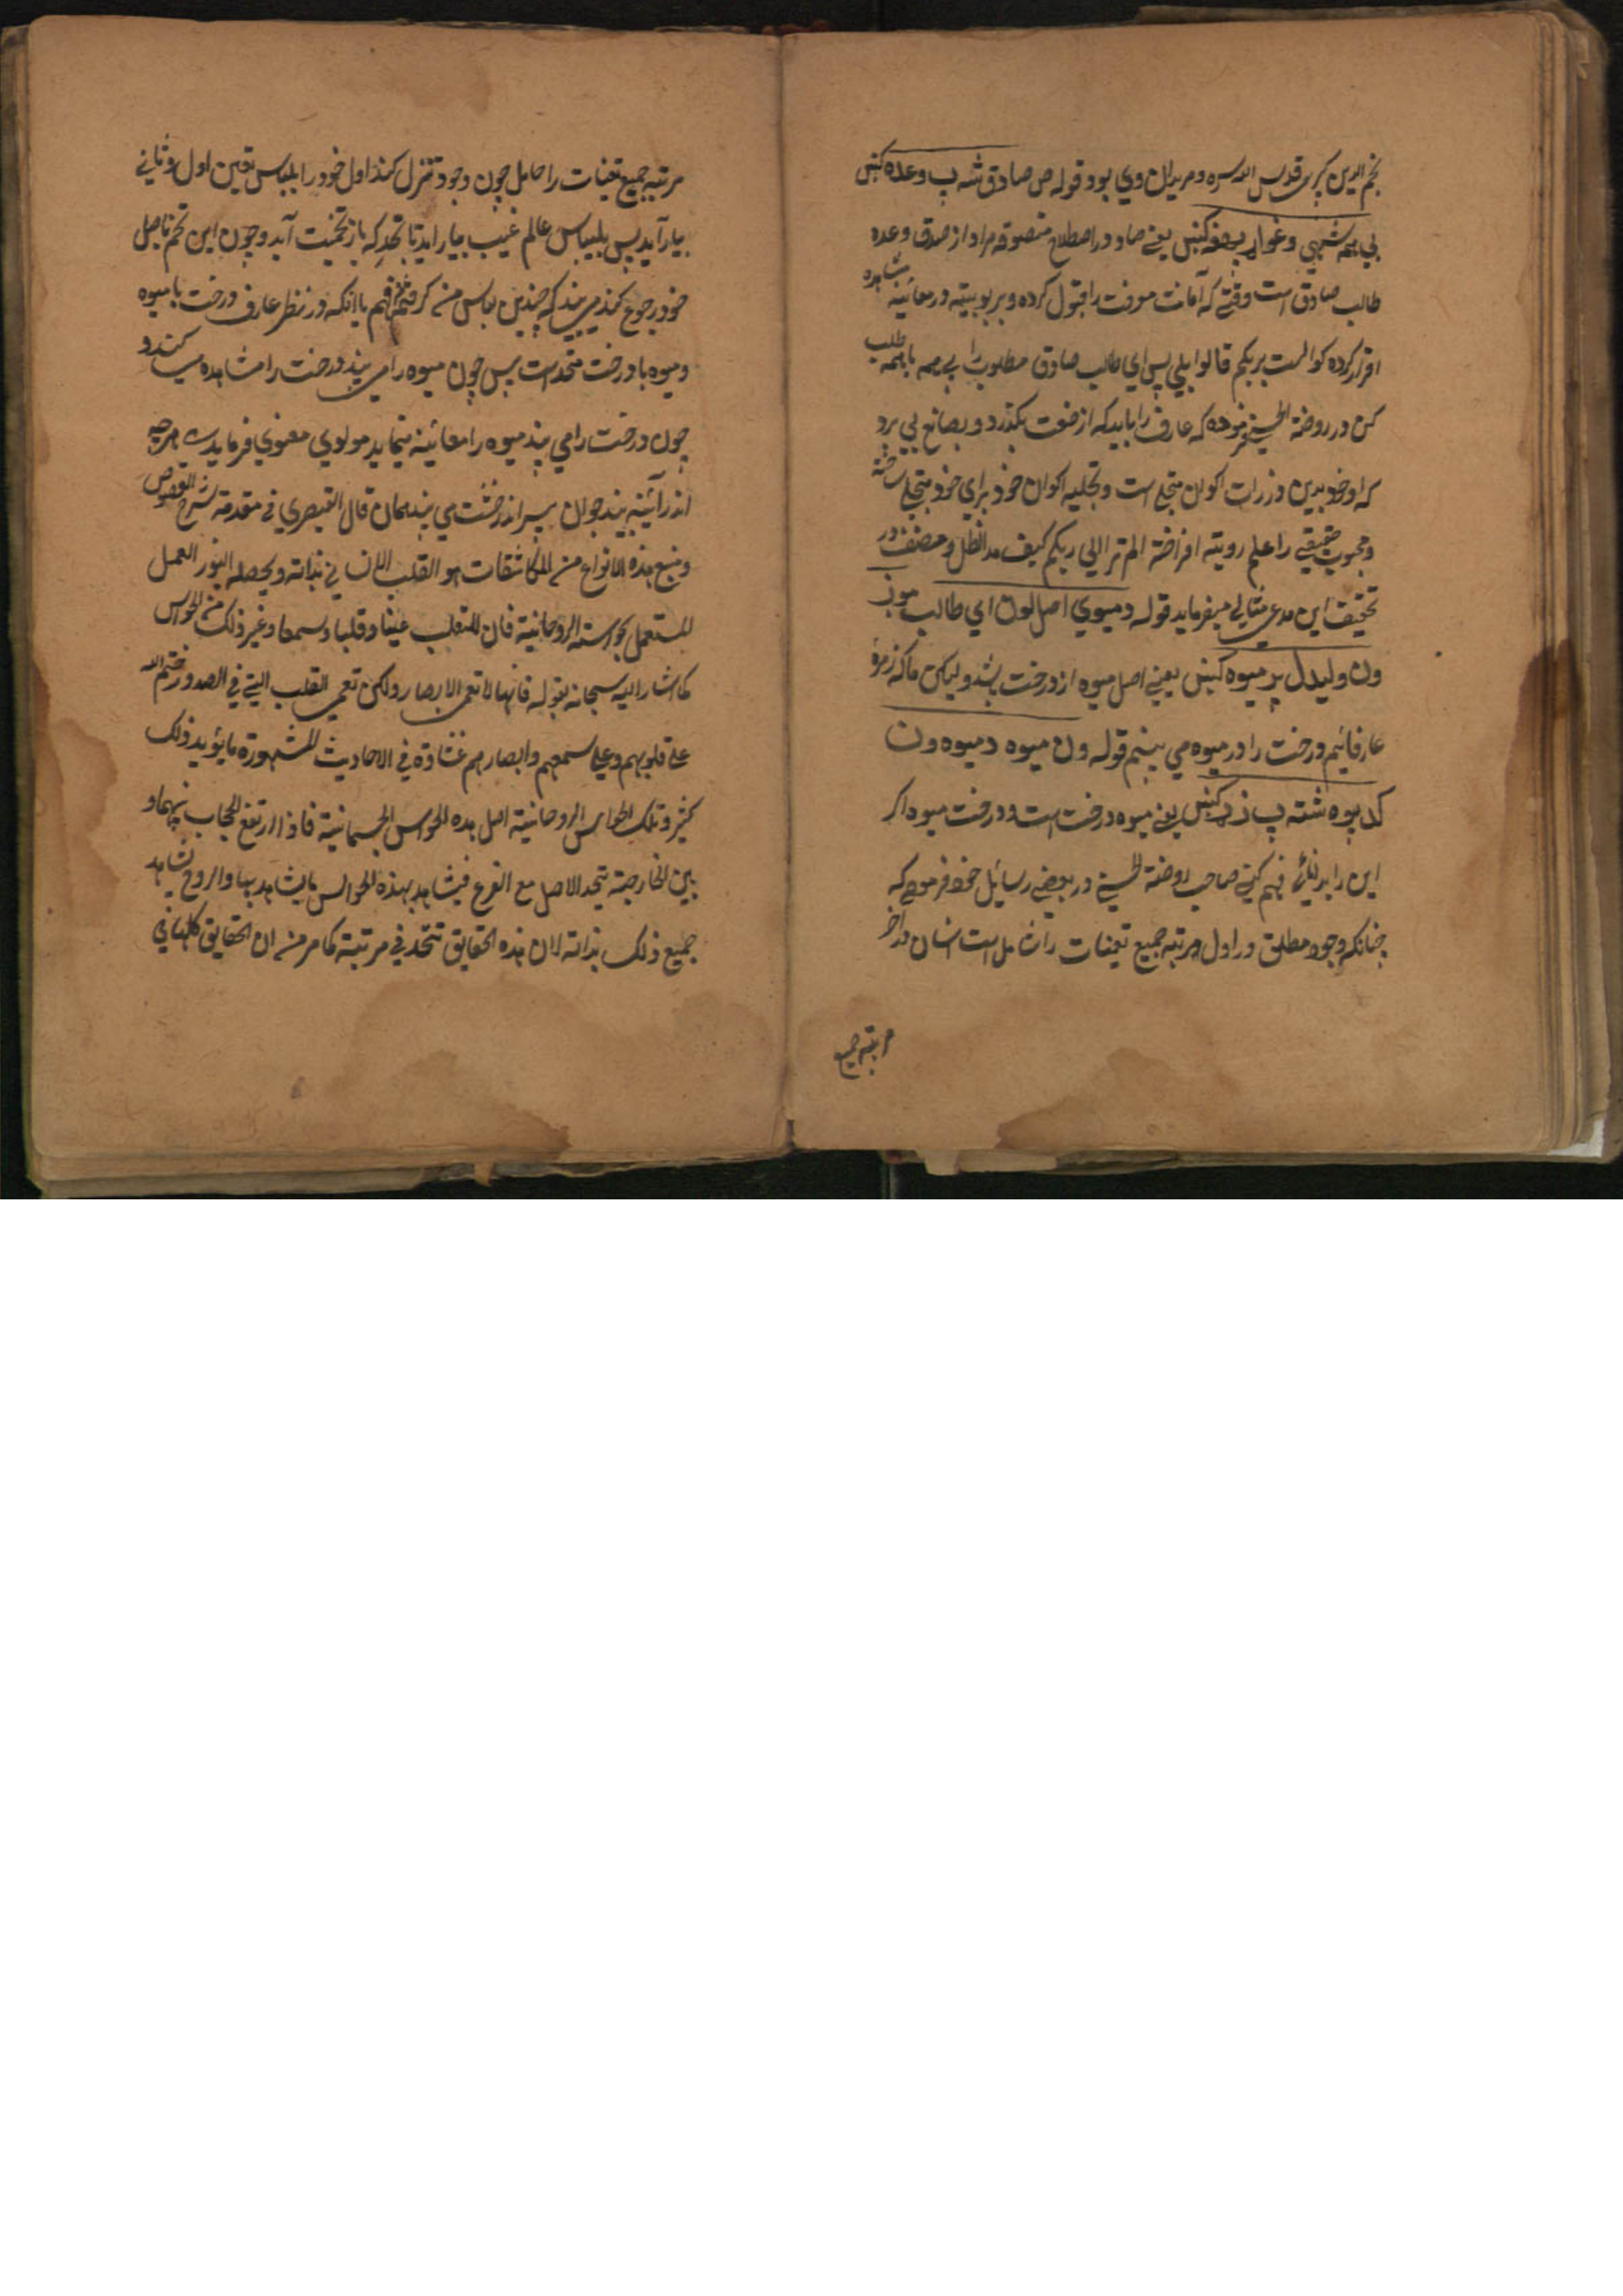 نجم الدین کبری قدس الله سره و مریدان وی بود قوله ص صادق شه پ وعده کښ
بی همه شهی وغواړ پ کښ یعنی صاد در اصطلاح متصوفه مراد از صدق وعده
طالب صادق است وقتی که امانت معرفت را قبول کرده و بربوبیته در معاینه مشاهده
اقرار کرده که الست بربکم قالوا بلی پس ای طالب صادق مطلوب را بی همه با همه طلب
کن در روضة الحسینی فرموده که عارف را باید که از صنعت بگذرد و بصانع پی برد
که او خود بدین ذرات اکوان متجلی است و تجلیه اکوان خود برای خود متجلی ساخته
و محبوب حقیقی را علم رویته افراخته الم تر الی ربکم کیف مد الظل و مصنف در
تحقیق این مدعی مثالی میفرماید قوله د میوی اصل لون ای طالب موند
ون ولیدل پر میوه کښ یعنی اصل میوه از درخت باشد و لیکن ما که زمرهٔ
عارفانیم درخت را در میوه می بینیم قوله ون میوه د میوه ون
کد یوه شته پ زړ کښ یعنی میوه درخت است و درخت میوه اگر
این را بدانگی فهم کنی صاحب روضة الحسینی در بعضی رسائل خود فرموده که
چنانکه وجود مطلق در اول مرتبه جمیع تعینات را شامل است انسان در آخر
مرتبه جمیع
مرتبه جمیع تعینات را حامل چون وجود تنزل کند اول خود را بلباس تعین اول و ثانی
بیاراید پس بلباس عالم غیب بیاراید تا بحدی که باز تخمیت آید و چون این تخم باصل
خود رجوع کند می بیند که چندین لباس من کرفتم فهم با آنکه در نظر عارف درخت با میوه
و میوه با درخت متحد است پس چون میوه را می بیند درخت را مشاهده میکند و
چون درخت را می بیند میوه را معاینه نماید مولوی معنوی فرماید هرچه
اندر آئینه بیند جوان پیر اندر خشت می بیند همان قال القیصری فی مقدمة شرح الفصوص
و منبع هذه الانواع من المکاشفات هو القلب الانسانی بذاته و بحصله النور العمل
المستعمل لحواسه الروحانیة فان للقلب عینا و قلبا و سمعا و غیر ذلک من الحواس
کما اشار الیه سبحانه بقوله فانها لا تعمی الابصار ولکن تعمی القلب التی فی الصدور ختم الله
علی قلوبهم و علی سمعهم و ابصارهم غشاوة فی الاحادیث المشهورة ما یؤید ذلک
کثیر و تلک الحواس الروحانیة اصل هذه الحواس الجسمانیة فاذا ارتفع الحجاب بینهما و
بین الخارجة یتحد الاصل مع الفرع فیشاهد بهذه الحواس ما یشاهد بها و الروح یشاهد
جمیع ذلک بذاته لان هذه الحقایق تتحد فی مرتبة کما مر من ان الحقایق کلها فی